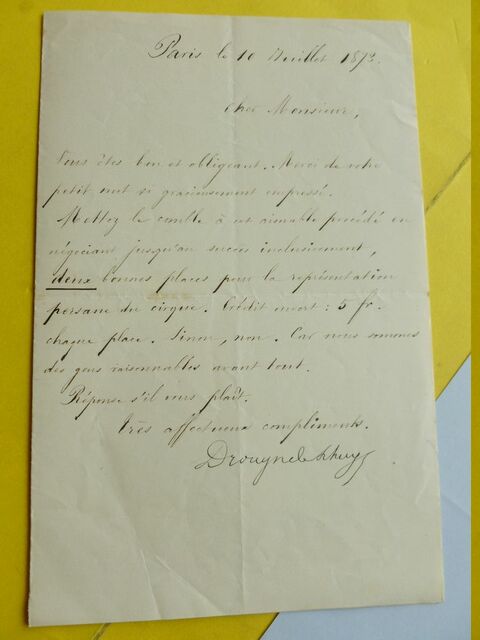 Paris le 10 Juillet 1873.
Cher Monsieur,
Vous êtes bon et obligeant. Merci de votre
petit mot si gracieusement empressé.
Mettez le comble à cet aimable procédé en
négociant jusqu'au succès inclusivement,
deux bonnes places pour la représentation
persane du cirque. Crédit ouvert : 5 fr.
chaque place. Sinon, non. Car nous sommes
des gens raisonnables avant tout.
Réponse s'il vous plaît.
Très affectueux compliments.
Drouyn de Lhuys